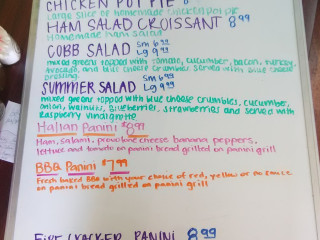 CHICKEN POT PIE 8
Large slice of homemade chicken pot pie
HAM SALAD CROISSANT 8 99
Homemade ham salad
COBB SALAD Sm 6 99
Lg 9 99
mixed greens topped with tomato, cucumber, bacon, turkey,
avocado, and bleu cheese crumbles served with blue cheese
dressing.
SUMMER SALAD Sm 6 99
Lg 9 99
mixed greens topped with blue cheese crumbles, cucumber,
onion, walnuts, blueberries, strawberries and served with
Raspberry vinaigrette
Italian Panini $8.99
Ham, salami, provolone cheese banana peppers,
lettuce and tomato on panini bread grilled on panini grill
BBQ Panini $7.99
Fresh baked BBQ with your choice of red, yellow or no sauce
on panini bread grilled on panini grill
FIRE CRACKER PANINI 8.99